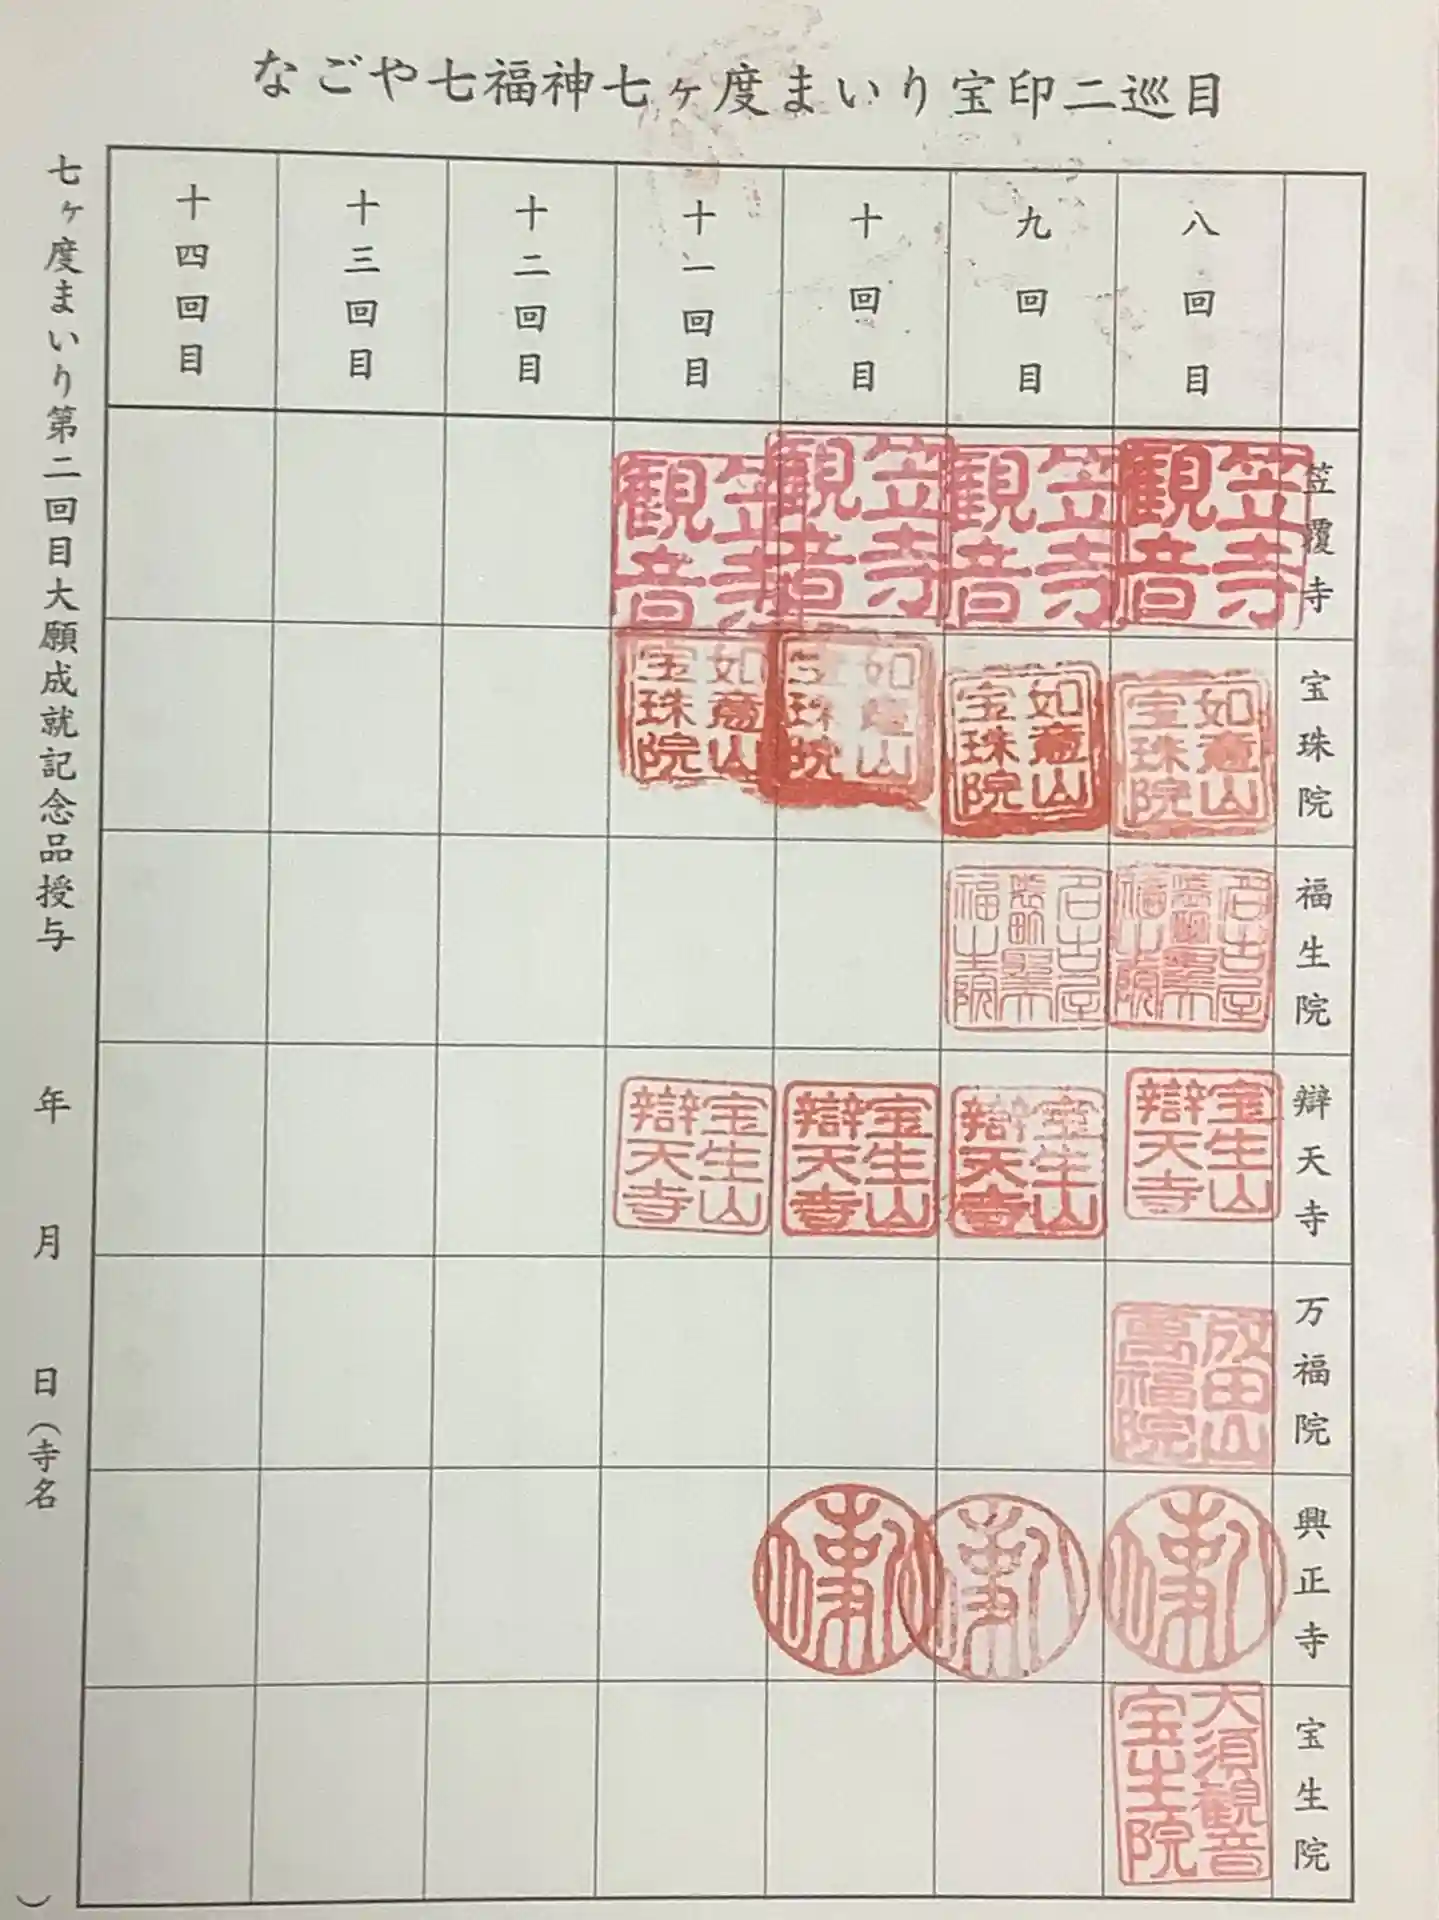 なごや七福神七ヶ度まいり宝印二巡目
八回目
九回目
十回目
十一回目
十二回目
十三回目
十四回目
笠覆寺
笠寺観音
笠寺観音
笠寺観音
笠寺観音
宝珠院
如意山宝珠院
如意山宝珠院
如意山宝珠院
如意山宝珠院
福生院
名古屋袋町聖天福生院
名古屋袋町聖天福生院
辯天寺
宝生山辯天寺
宝生山辯天寺
宝生山辯天寺
宝生山辯天寺
万福院
成田山萬福院
興正寺
宝生院
大須観音宝生院
七ヶ度まいり第二回目大願成就記念品授与 年 月 日(寺名 )